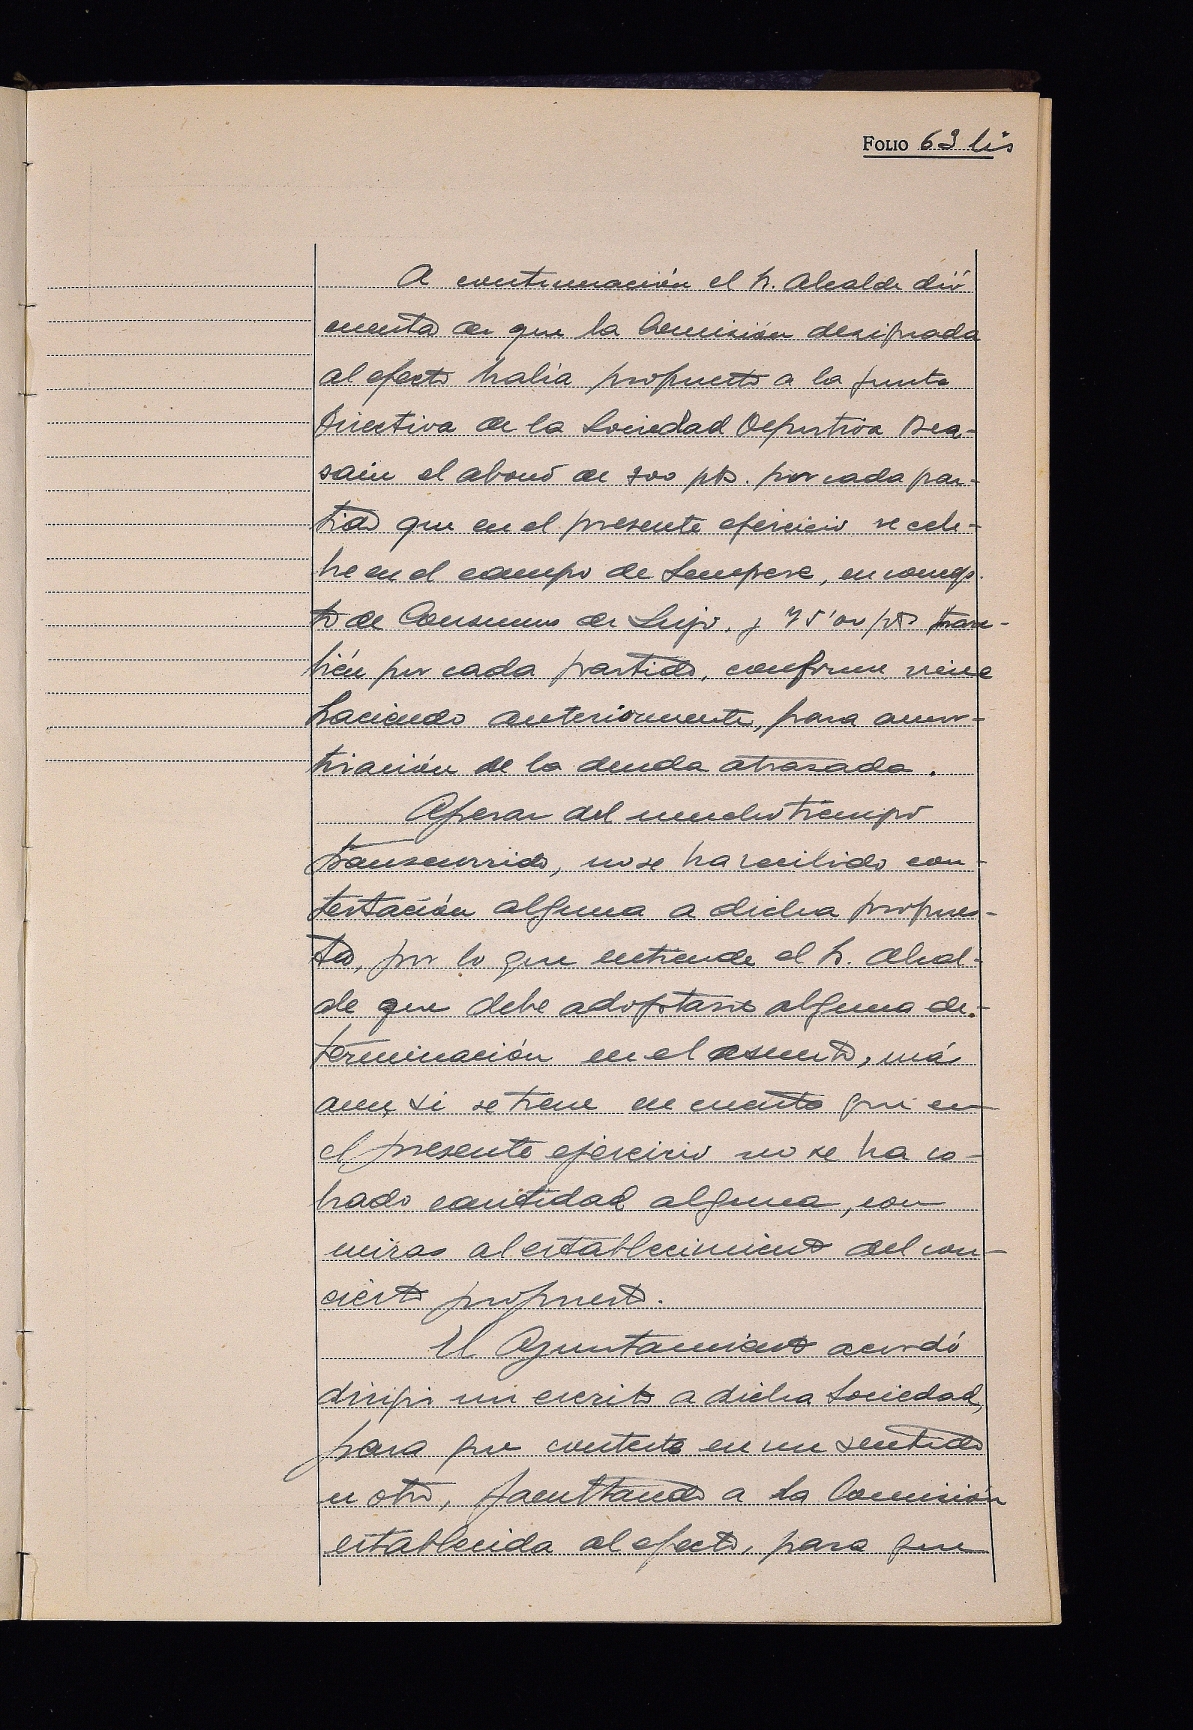 FOLIO 63 bis
A continuación el Sr. Alcalde dió
cuenta de que la Comisión designada
al efecto había propuesto a la Junta
Directiva de la Sociedad Deportiva Bea-
sain el abono de pts. por cada par-
tido que en el presente ejercicio se cele-
bre en el campo de Loinpere, en concep-
to de Consumos de Lujo, y 75'00 pts tam-
bién por cada partido, conforme viene
haciendo anteriormente, para amor-
tización de la deuda atrasada.
Apesar del mucho tiempo
transcurrido, no se ha recibido con-
testación alguna a dicha propues-
ta, por lo que entiende el Sr. Alcal-
de que debe adoptarse alguna de-
terminación en el asunto, más
aun si se tiene en cuenta que en
el presente ejercicio no se ha co-
brado cantidad alguna, con
miras al establecimiento del con-
cierto propuesto.
El Ayuntamiento acordó
dirigir un escrito a dicha Sociedad,
para que conteste en un sentido
u otro, facultando a la Comisión
establecida al efecto, para que